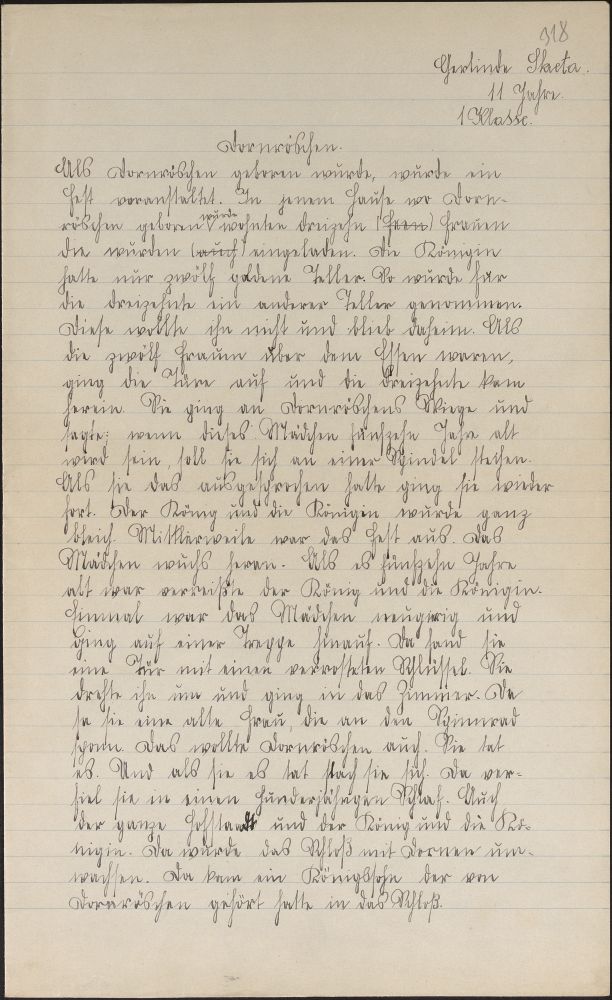 318
Gerlinde Skacta.
11 Jahre.
1 Klasse.
Dornröschen.
Als Dornröschen geboren wurde, wurde ein
Fest voranstaltet. In jenem Hause wo Dorn-
röschen geboren wurde wohnten dreizehn (Feen) Frauen
die wurden (auch) eingeladen. Die Königin
hatte nur zwölf goldene Teller. So wurde für
die dreizehnte ein anderer Teller genommen.
Diese wollte ihn nicht und blieb daheim. Als
die zwölf Frauen über dem Essen waren,
ging die Türe auf und die Dreizehnte kam
herein. Sie ging an Dornröschens Wiege und
sagte: wenn dieses Mädchen fünfzehn Jahre alt
wird sein, soll sie sich an einer Spindel stechen.
Als sie das ausgesprochen hatte ging sie wieder
fort. Der König und die Königen wurde ganz
bleich. Mittlerweile war das Fest aus. Das
Mädchen wuchs heran. Als es fünfzehn Jahre
alt war verreißte der König und die Königin.
Einmal war das Mädchen neugirig und
ging auf einer Treppe hinauf. Da fand sie
eine Tür mit einen verrosteten Schlüssel. Sie
drehte ihn um und ging in das Zimmer. Da
sa sie eine alte Frau, die an den Spinnrad
sponn. Das wollte Dornröschen auch. Sie tat
es. Und als sie es tat stach sie sich. Da ver-
fiel sie in einen hunderjährigen Schlaf. Auch
der ganze Hofstaadt und der König und die Kö-
nigin. Da wurde das Schloß mit Dornen um-
wachsen. Da kam ein Königssohn der von
Dornröschen gehört hatte in das Schloß.